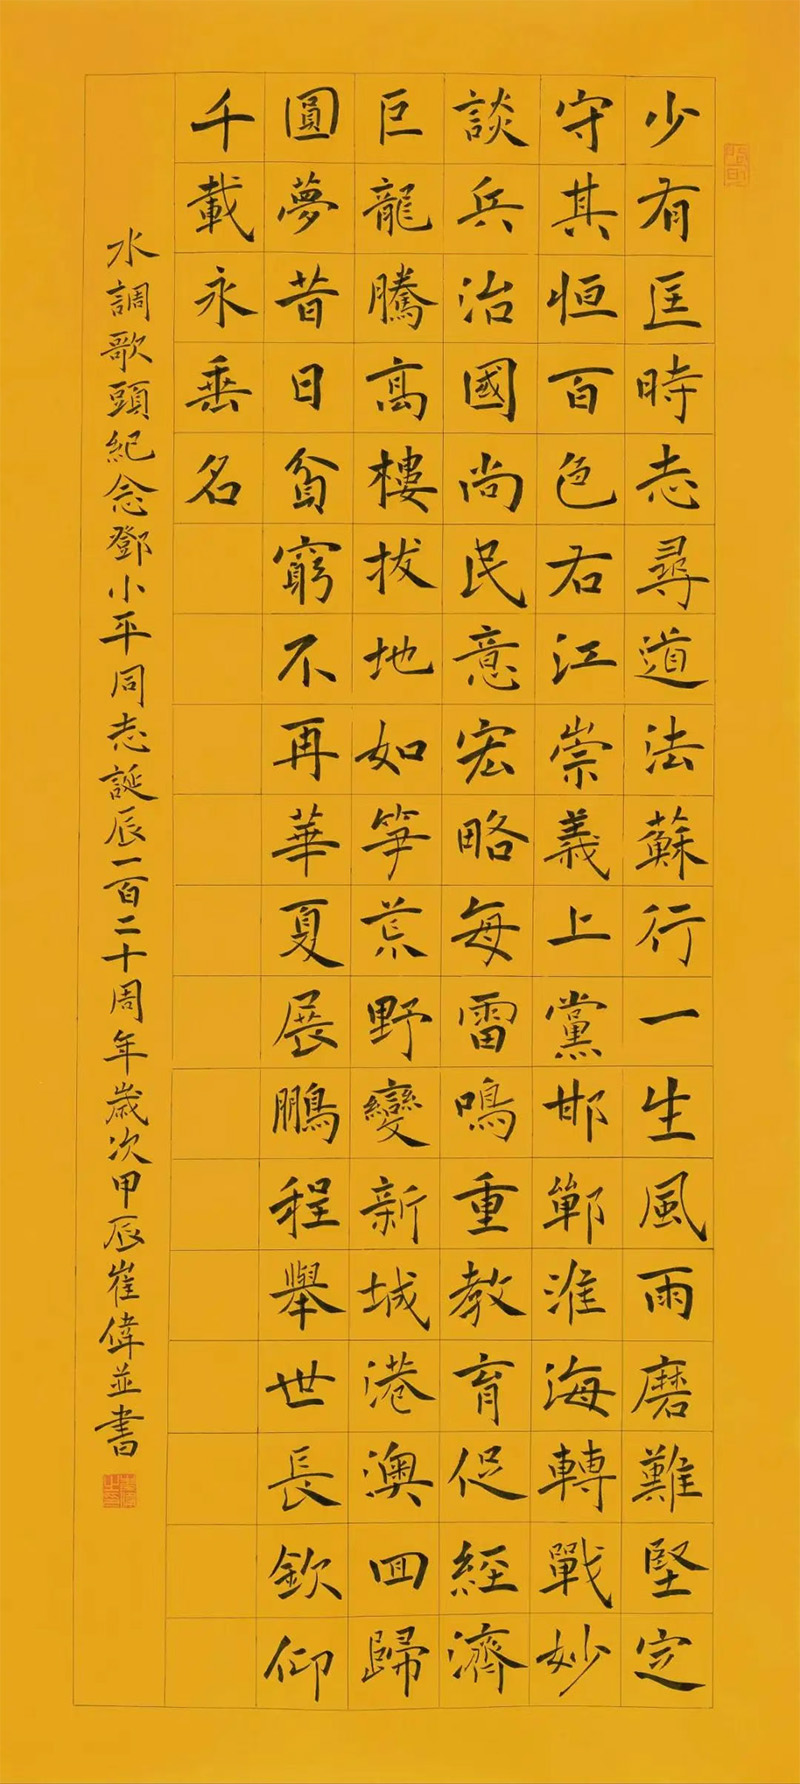 少有匡時志尋道法蘇行一生風雨磨難堅定
守其恒百色右江崇義上黨邯鄲淮海轉戰妙
談兵治國尚民意宏略每雷鳴重教育促經濟
巨龍騰高樓拔地如筍荒野變新城港澳回歸
圓夢昔日貧窮不再華夏展鵬程舉世長欽仰
千載永垂名
水調歌頭紀念鄧小平同志誕辰一百二十周年歲次甲辰崔偉並書